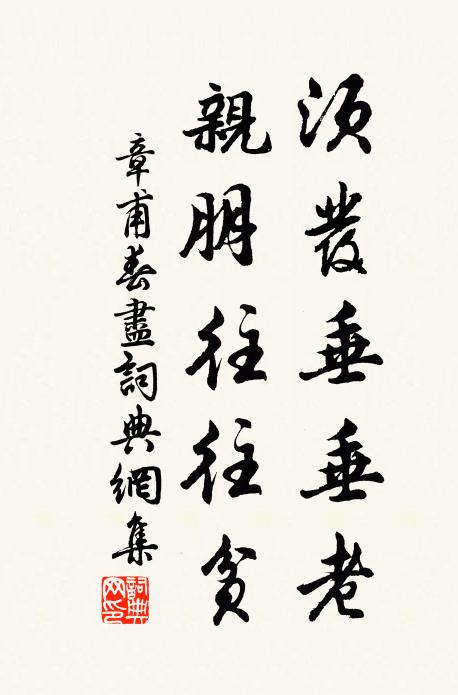 須發垂垂老
親朋往往貧
章甫春盡詞典網集
詞典網印